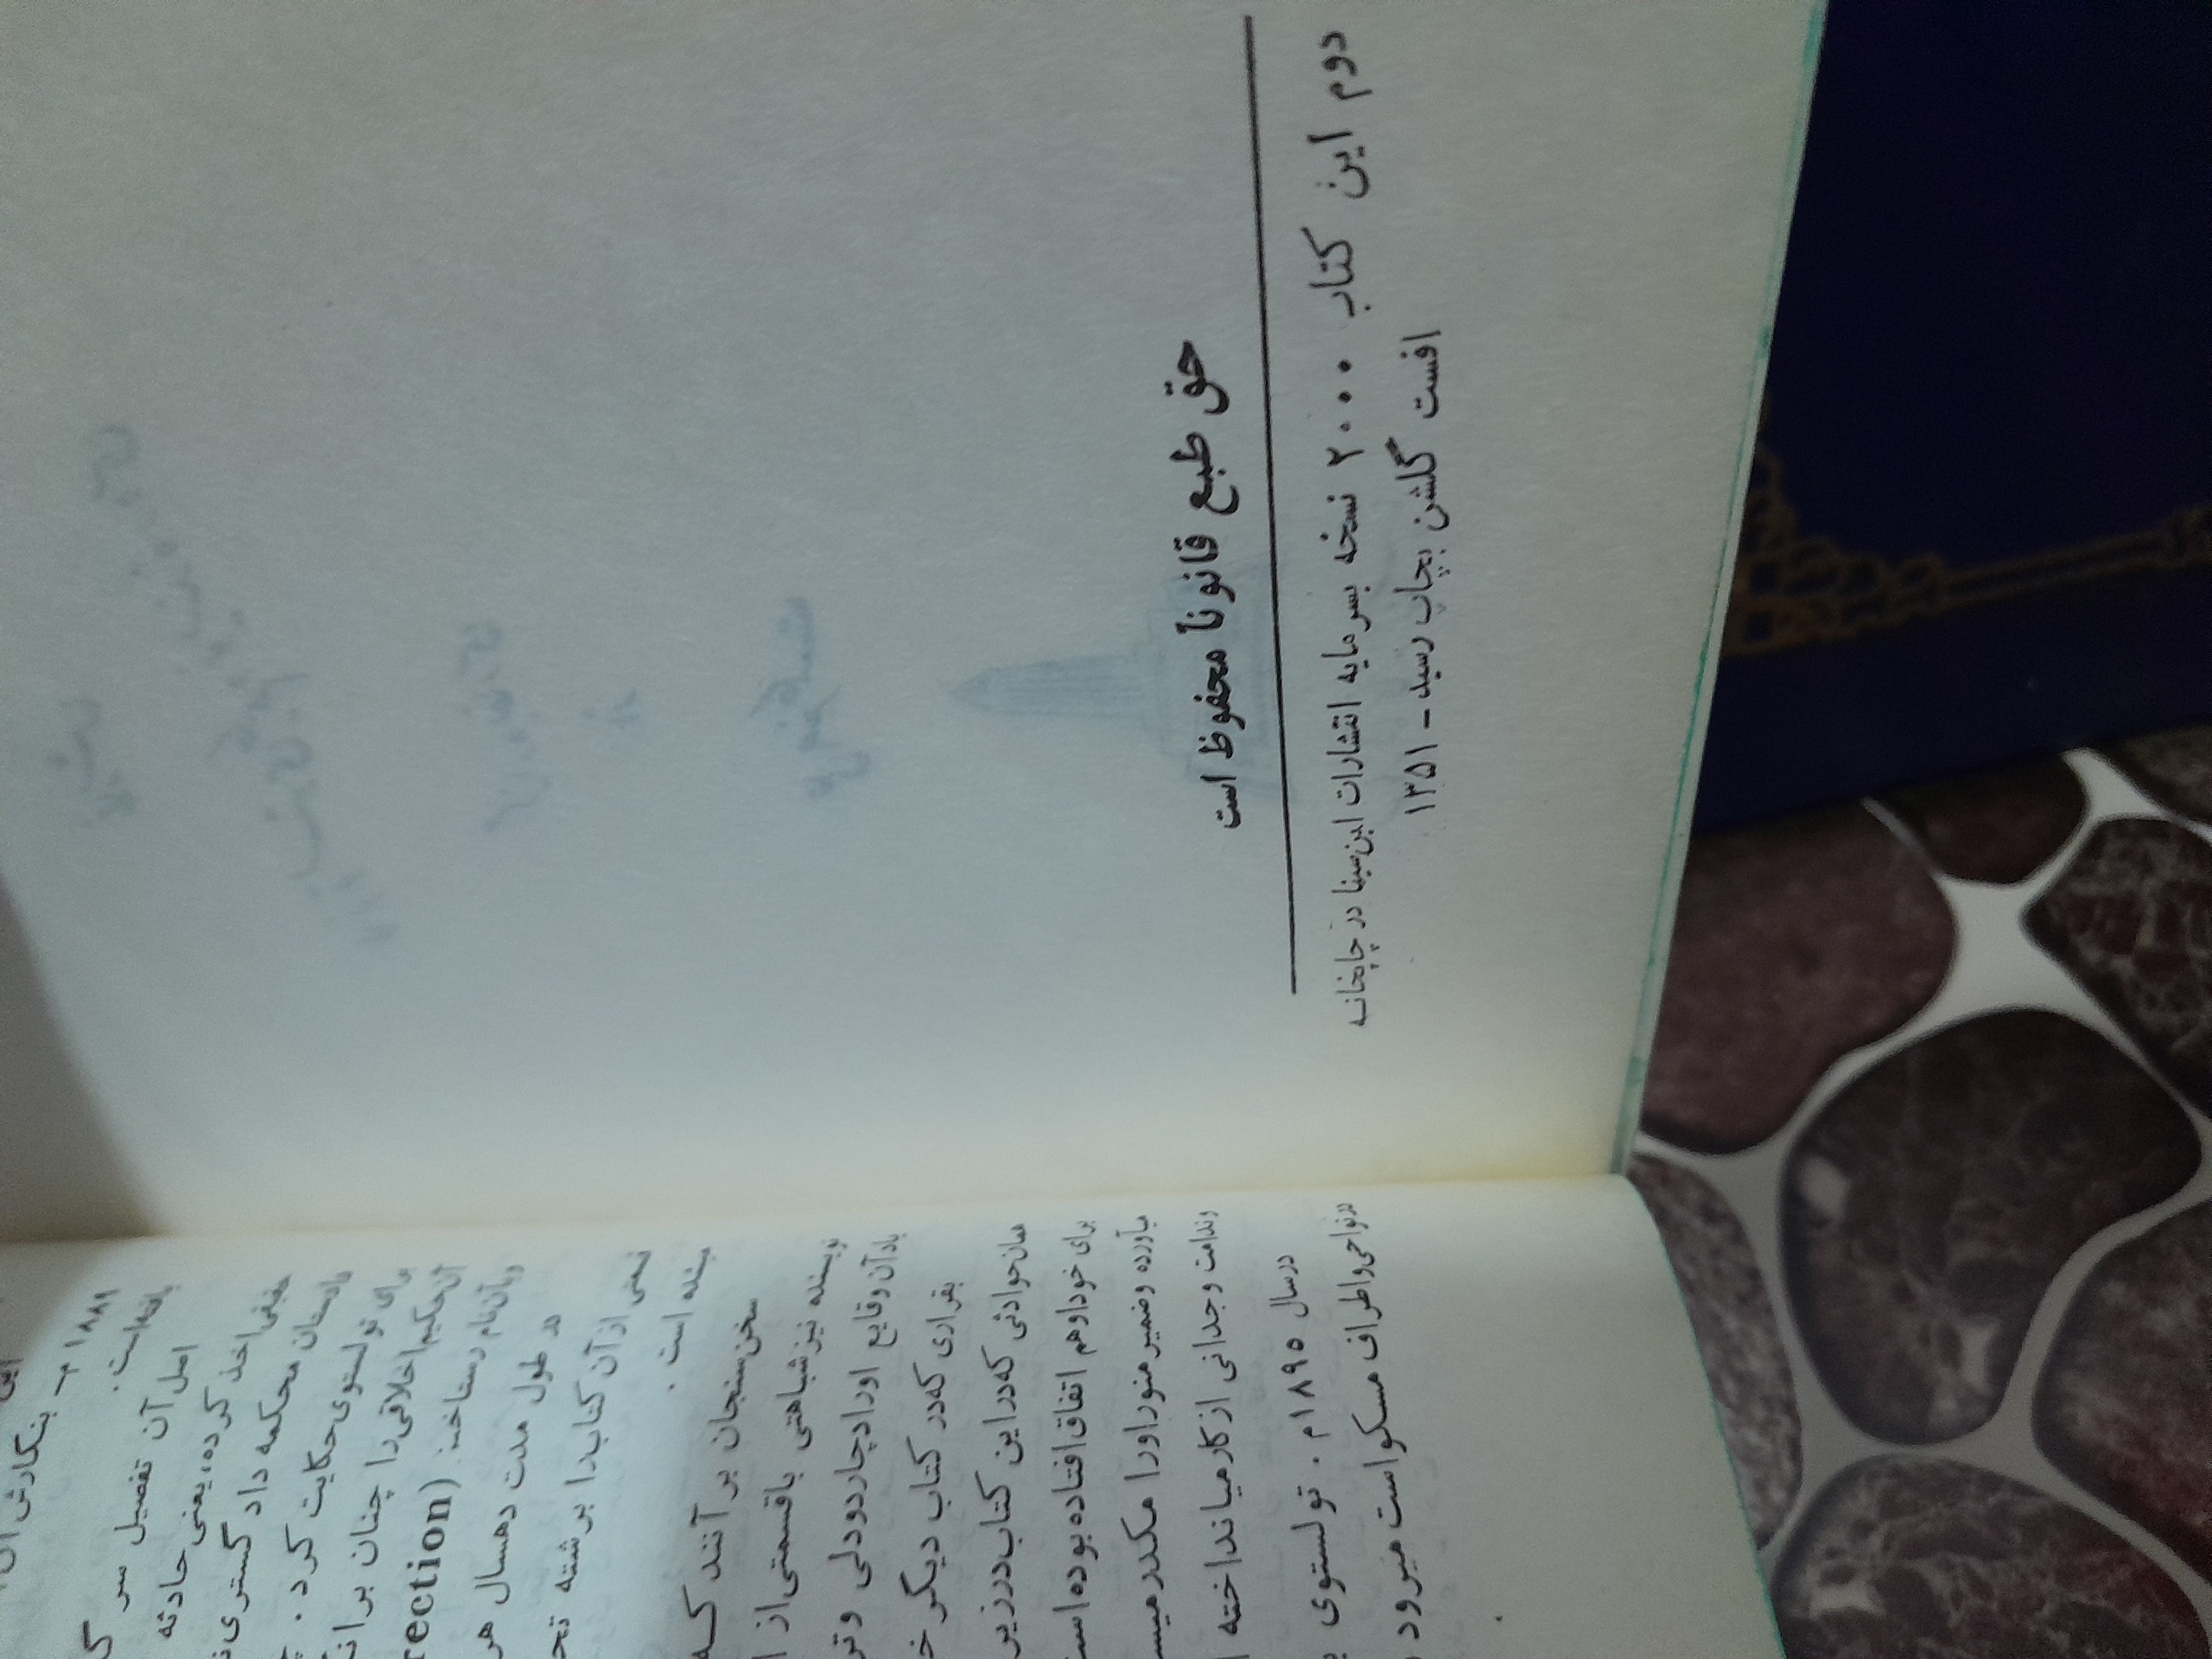 حق طبع قانونا محفوظ است
دوم این کتاب ۲۰۰۰ نسخه بسرمایه انتشارات ابن‌سینا در چاپخانه
افست گلشن بچاپ رسید - ۱۳۵۱
۱۸۸۹ م بنگارش
یافته‌است .
اصل آن تفصیل سر
حقیقی اخذ کرده، یعنی حادثه
دادستان محکمه دادگستری
برای تولستوی حکایت کرد .
آن حکیم اخلاقی را چنان بر
وبآن نام رستاخیز (rection
در طول مدت دهسال هر
قسمتی از آن کتاب را برشته تح
میشده است .
سخن سنجان بر آنند که
نویسنده نیز شباهتی باقسمتی از ا
یاد آن وقایع اورا دچار دودلی وتر
بقراری که در کتاب دیگر خ
همان حوادثی که در این کتاب در زیر
برای خود او هم اتفاق افتاده بوده است
میآورده وضمیر منور اورا مکدر میس
وندامت وجدانی از کار میانداخته ا
در سال ۱۸۹۵ م . تولستوی ب
در نواحی واطراف مسکو است میرود